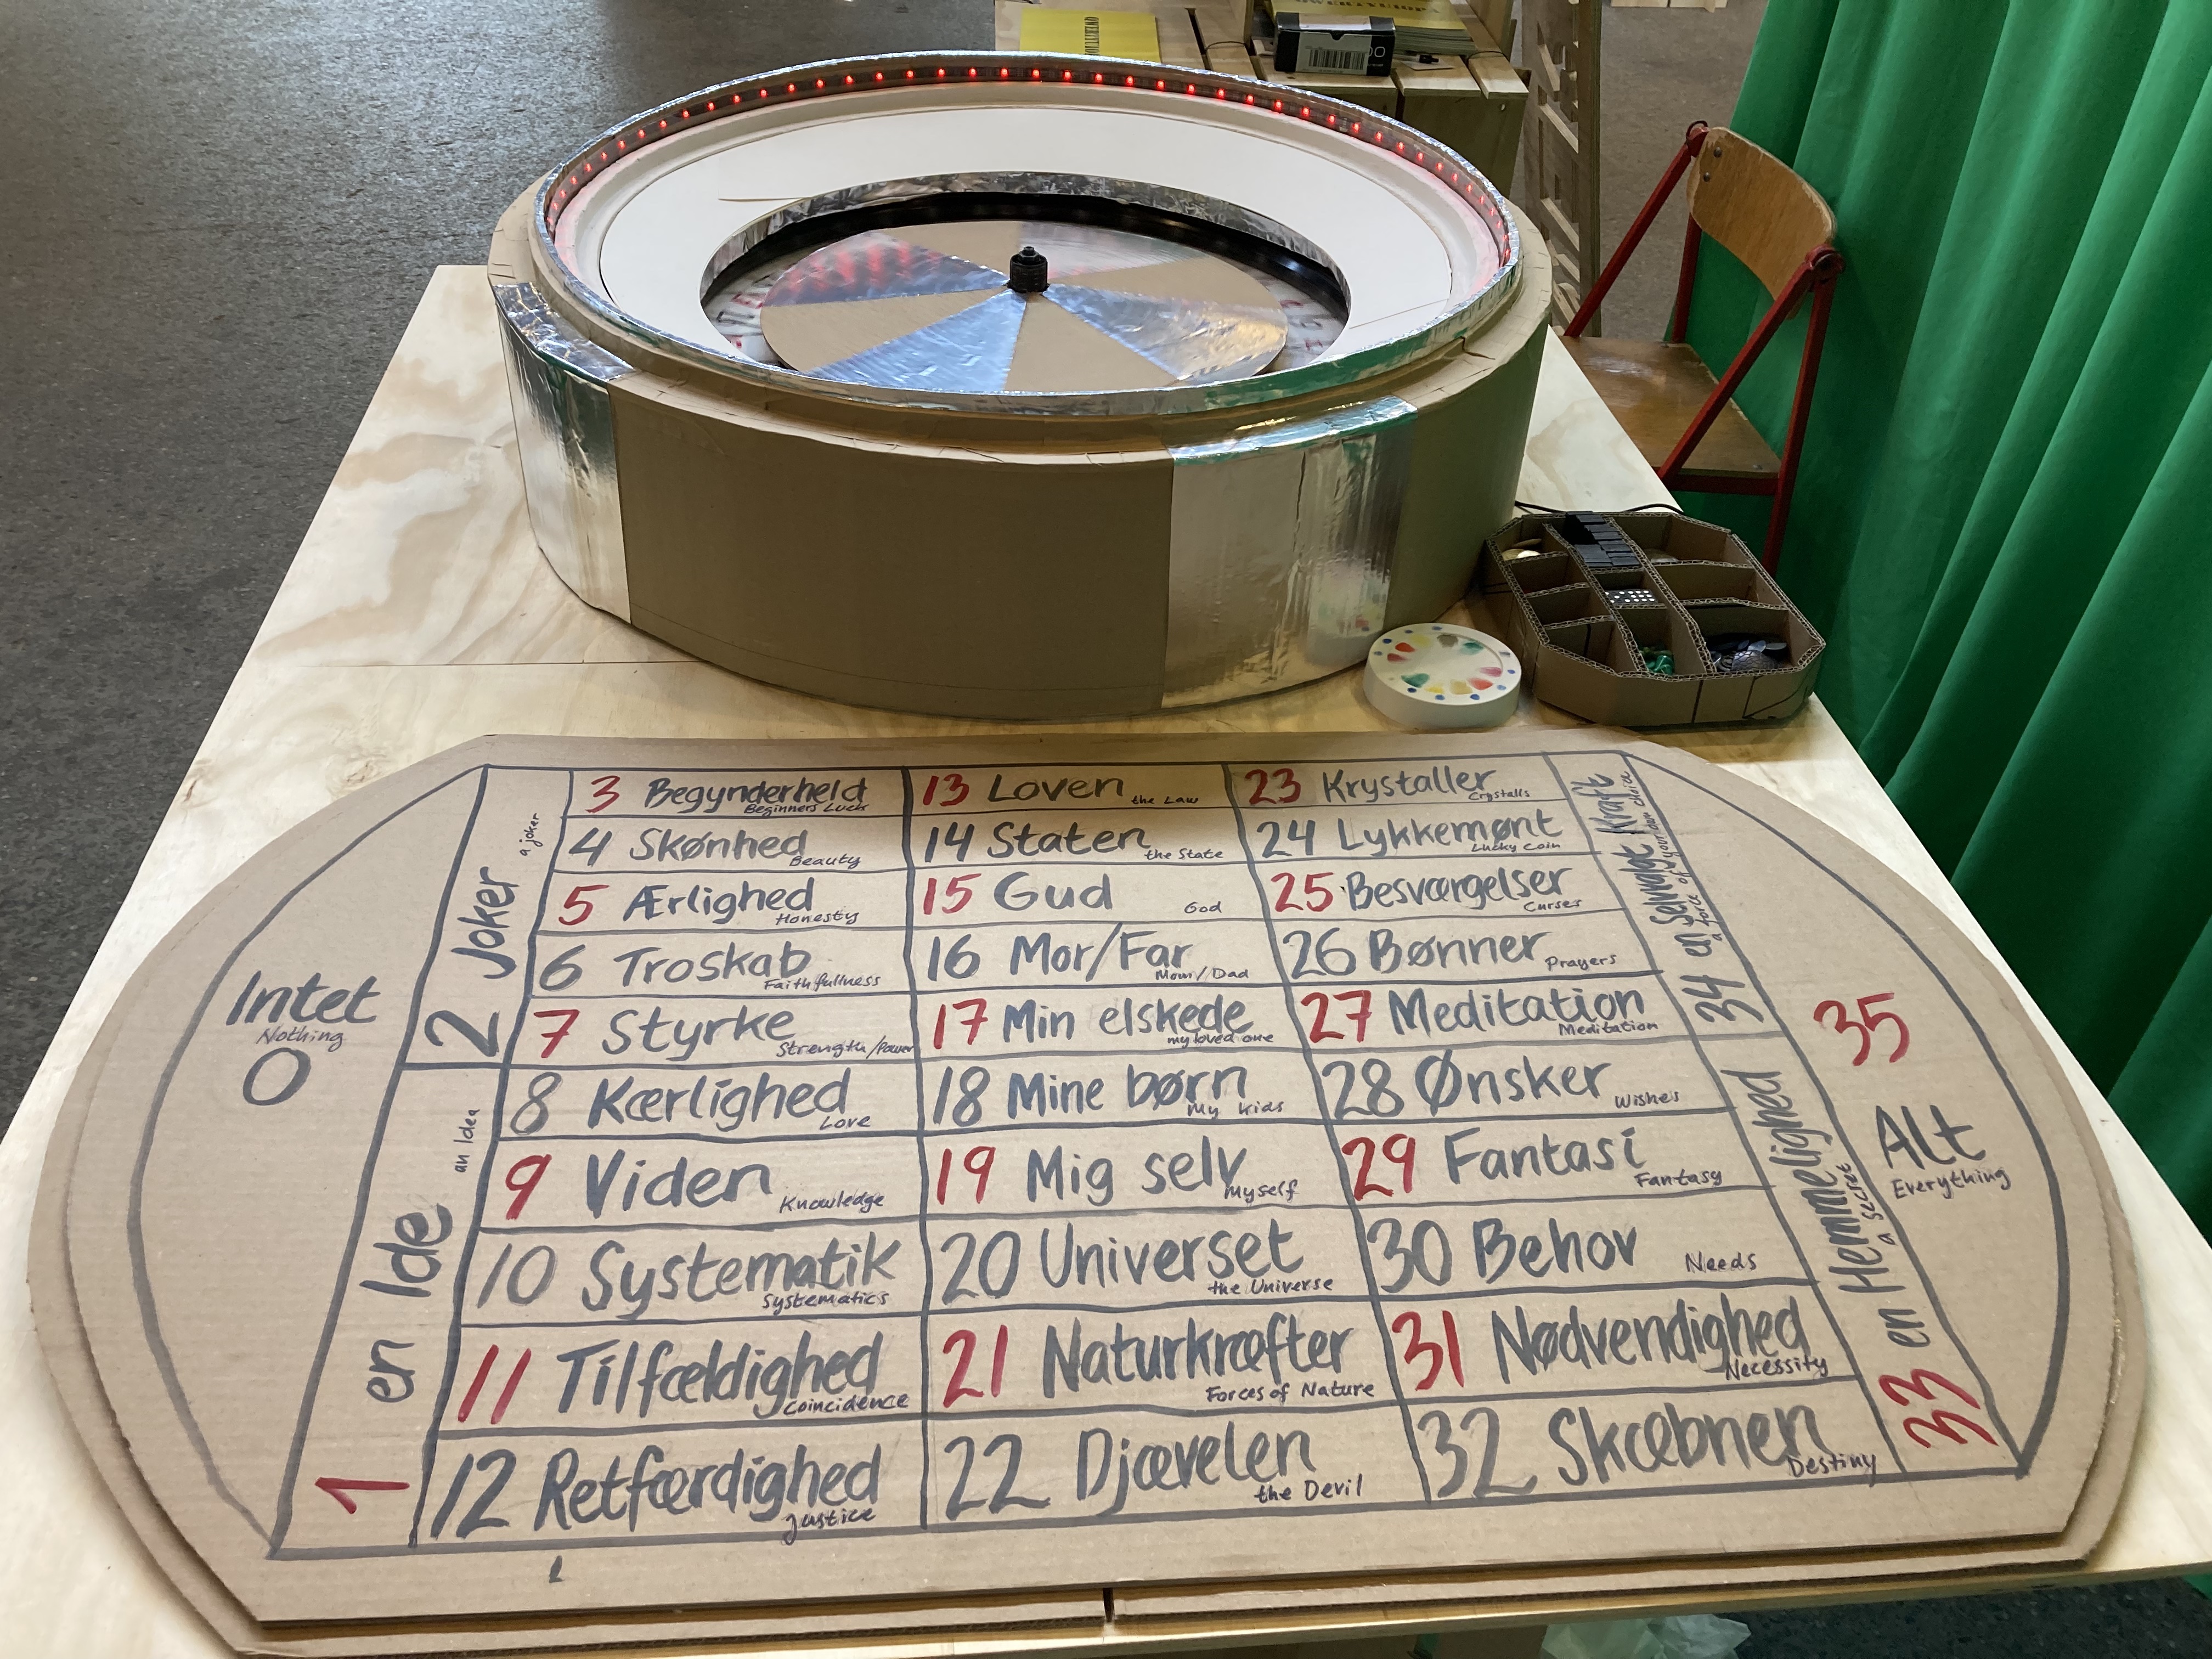 Intet
Nothing
0
1 en Ide
an Idea
2 Joker
a joker
3 Begynderheld
Beginners Luck
4 Skønhed
Beauty
5 Ærlighed
Honesty
6 Troskab
Faithfullness
7 Styrke
Strength/Power
8 Kærlighed
Love
9 Viden
Knowledge
10 Systematik
Systematics
11 Tilfældighed
Coincidence
12 Retfærdighed
Justice
13 Loven
the Law
14 Staten
the State
15 Gud
God
16 Mor/Far
Mom/Dad
17 Min elskede
my loved one
18 Mine børn
My kids
19 Mig selv
Myself
20 Universet
the Universe
21 Naturkræfter
Forces of Nature
22 Djævelen
the Devil
23 Krystaller
Crystalls
24 Lykkemønt
Lucky Coin
25 Besværgelser
Curses
26 Bønner
Prayers
27 Meditation
Meditation
28 Ønsker
Wishes
29 Fantasi
Fantasy
30 Behov
Needs
31 Nødvendighed
Necessity
32 Skæbnen
Destiny
33 en Hemmelighed
a secret
34 en Selvvalgt Kraft
a force of your own choice
35
Alt
Everything